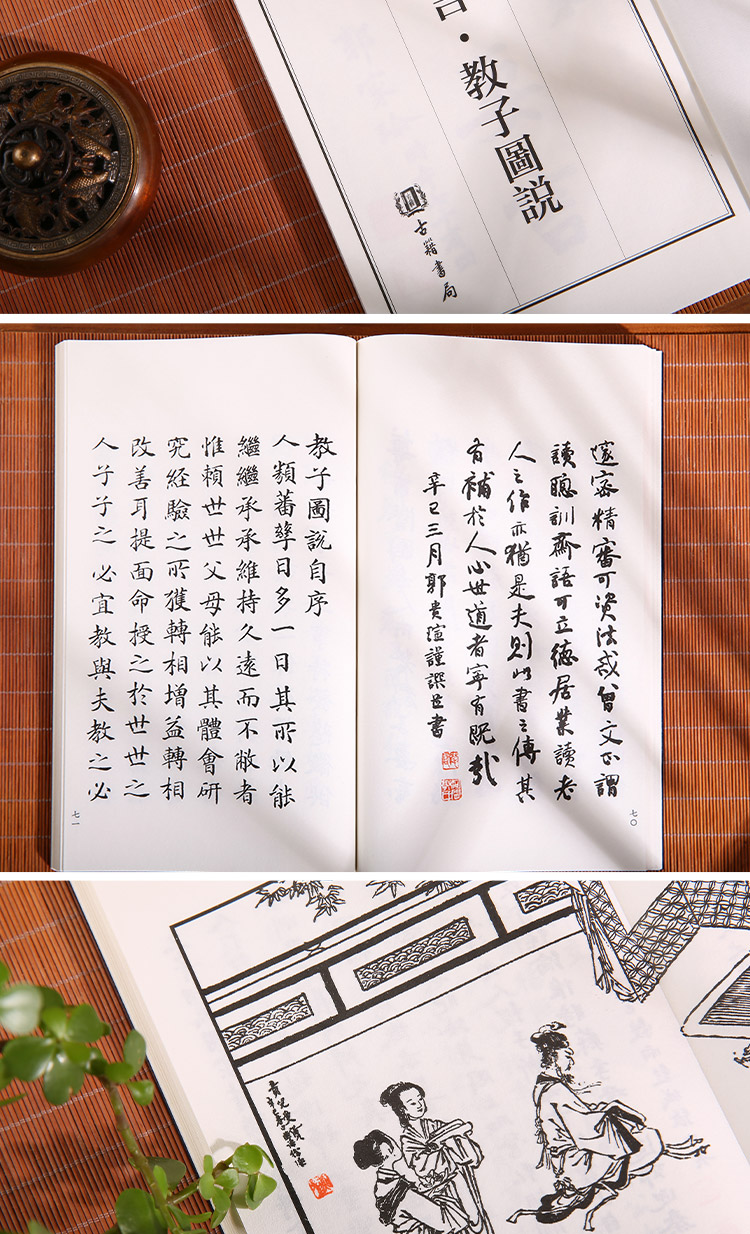 言·教子圖説
古籍書局
邃密精審可資法戒曾文正謂
讀聰訓齋語可立德居業讀老
人之作亦猶是夫則此書之傳其
有補於人心世道者寧有既哉
辛巳三月郭貴瑄謹譔並書
七〇
教子圖説自序
人類蕃孳日多一日其所以能
繼繼承承維持久遠而不敝者
惟賴世世父母能以其體會研
究經驗之所獲轉相增益轉相
改善耳提面命授之於世世之
人子子之必宜教與夫教之必
七一